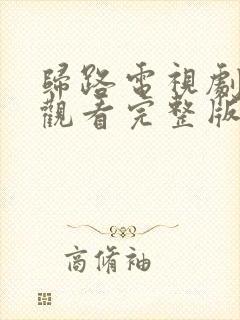 歸路電視劇
觀看完整版
高脩袖